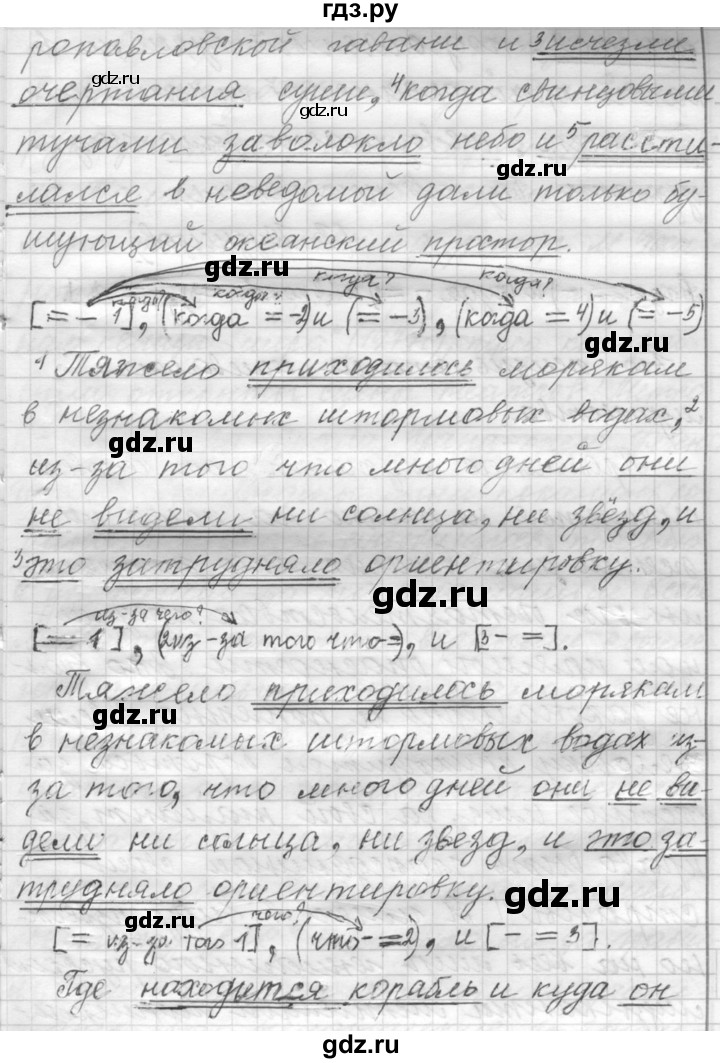 гдз.ру
ропавловской гавани и ³исчезли
очертания суши, ⁴когда свинцовыми
тучами заволокло небо и ⁵рассти-
лался в неведомой дали только бу-
шующий океанский простор.
когда? когда? когда? когда?
[= – 1], (когда = –2) и (= –3), (когда = 4) и (= –5)
¹Тяжело приходилось морякам
в незнакомых штормовых водах,²
из-за того что много дней они
не видели ни солнца, ни звёзд, и
³это затрудняло ориентировку.
из-за чего?
[= 1], (2из-за того что–=), и [3 – =].
Тяжело приходилось морякам
в незнакомых штормовых водах из-
за того, что много дней они не ви-
дели ни солнца, ни звезд, и это за-
трудняло ориентировку.
чего?
[= из-за того 1], (что – =2), и [– = 3].
Где находится корабль и куда он
gdz.ru
gdz.ru
gdz.ru
gdz.ru
gdz.ru
gdz.ru
gdz.ru
gdz.ru
gdz.ru
gdz.ru